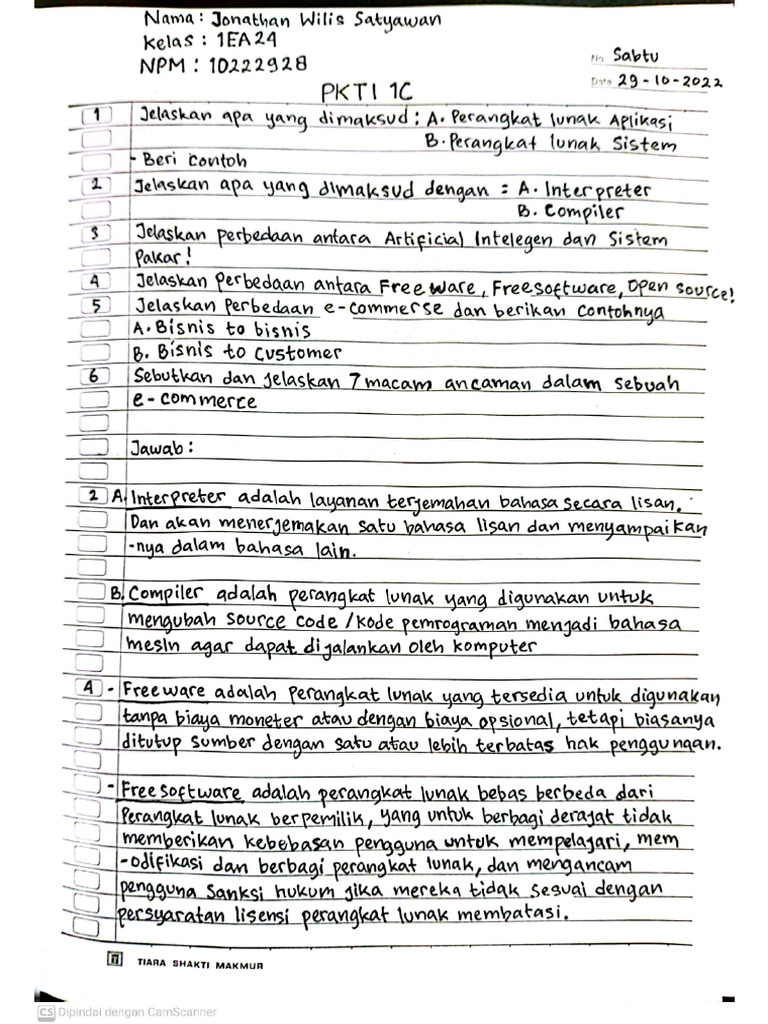 Nama : Jonathan Wilis Satyawan
Kelas : 1EA24
NPM : 10222928
No. Sabtu
Date 29-10-2022
PKTI 1C
1 Jelaskan apa yang dimaksud : A. Perangkat lunak Aplikasi
B. Perangkat lunak Sistem
- Beri contoh
2 Jelaskan apa yang dimaksud dengan : A. Interpreter
B. Compiler
3 Jelaskan perbedaan antara Artificial Intelegen dan Sistem
Pakar!
4 Jelaskan Perbedaan antara Freeware, Freesoftware, Open source!
5 Jelaskan Perbedaan e-commerse dan berikan contohnya
A. Bisnis to bisnis
B. Bisnis to Customer
6 Sebutkan dan jelaskan 7 macam ancaman dalam sebuah
e-commerce
Jawab :
2 A. Interpreter adalah layanan terjemahan bahasa secara lisan.
Dan akan menerjemakan satu bahasa lisan dan menyampaikan
-nya dalam bahasa lain.
B. Compiler adalah perangkat lunak yang digunakan untuk
mengubah source code /kode pemrograman menjadi bahasa
mesin agar dapat dijalankan oleh komputer
4 - Freeware adalah perangkat lunak yang tersedia untuk digunakan
tanpa biaya moneter atau dengan biaya opsional, tetapi biasanya
ditutup sumber dengan satu atau lebih terbatas hak penggungan.
- Freesoftware adalah perangkat lunak bebas berbeda dari
Perangkat lunak berpemilik, yang untuk berbagi derajat tidak
memberikan kebebasan pengguna untuk mempelajari, mem
-odifikasi dan berbagi perangkat lunak, dan mengancam
pengguna sanksi hukum jika mereka tidak sesuai dengan
persyaratan lisensi perangkat lunak membatasi.
TIARA SHAKTI MAKMUR
CS Dipindai dengan CamScanner